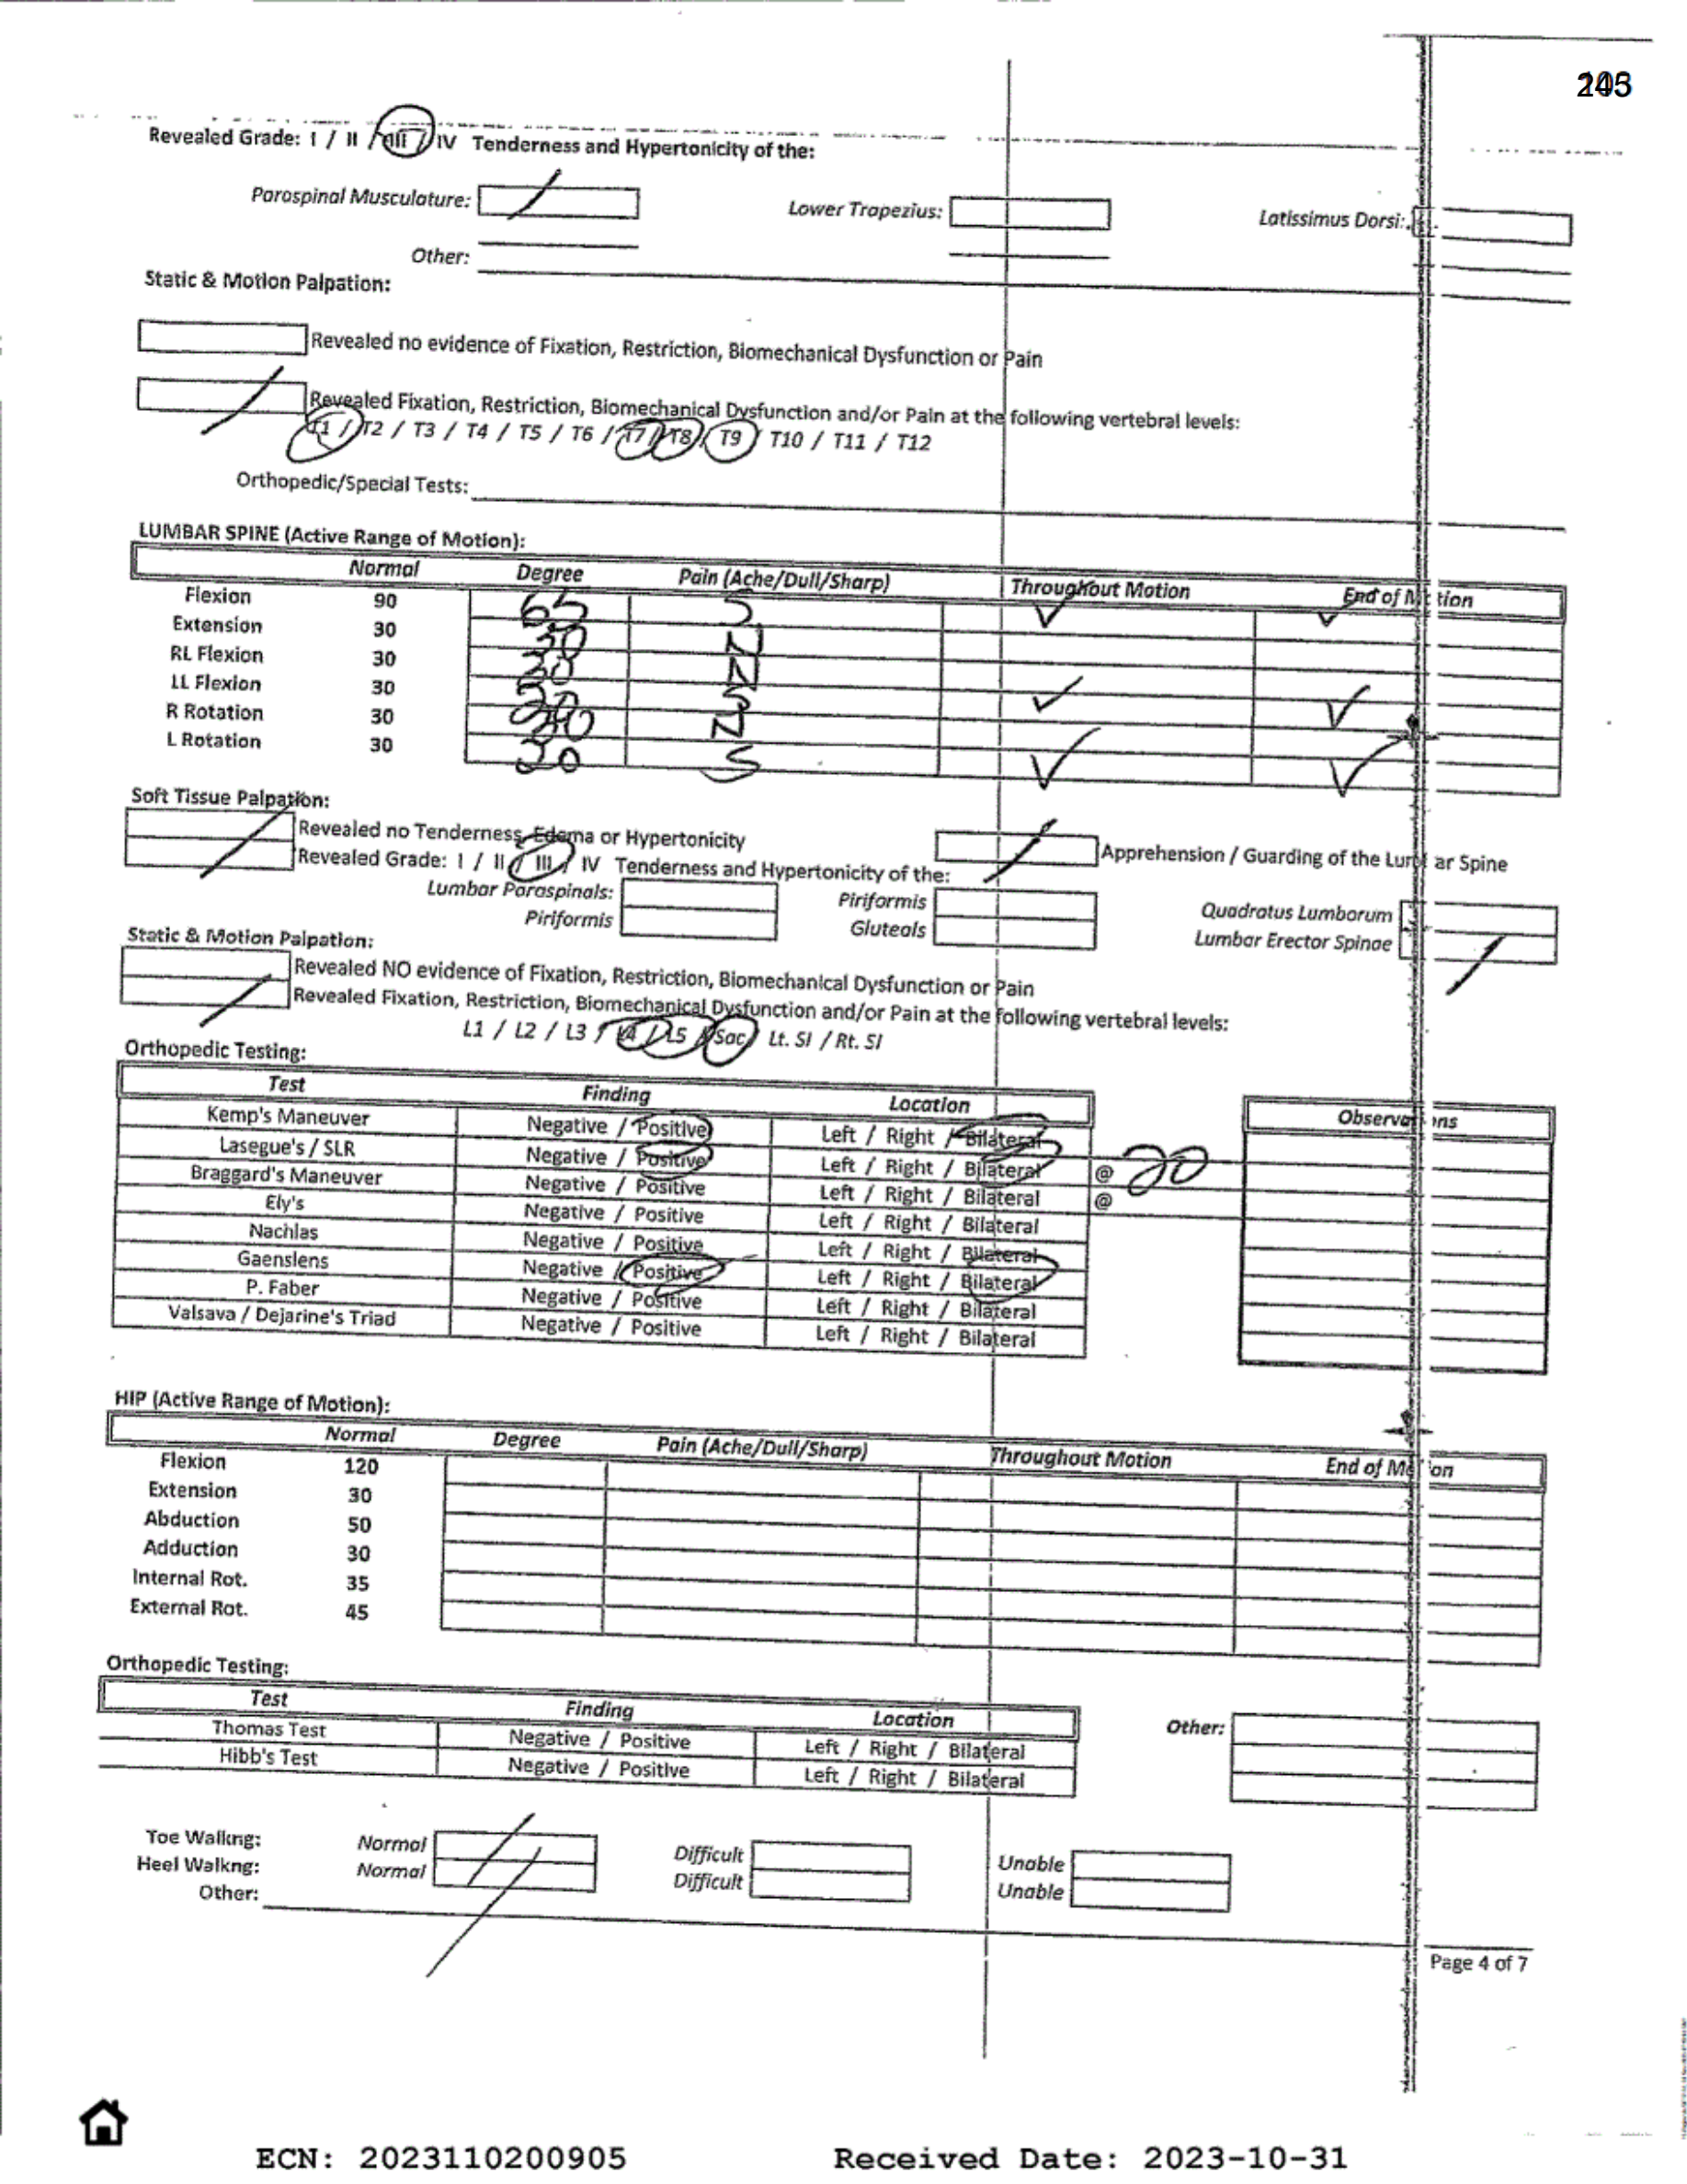 Revealed Grade: I / II / III / IV Tenderness and Hypertonicity of the:
Paraspinal Musculature: Lower Trapezius: Latissimus Dorsi:
Other:
Static & Motion Palpation:
Revealed no evidence of Fixation, Restriction, Biomechanical Dysfunction or Pain
Revealed Fixation, Restriction, Biomechanical Dysfunction and/or Pain at the following vertebral levels:
T1 / T2 / T3 / T4 / T5 / T6 / T7 / T8 / T9 / T10 / T11 / T12
Orthopedic/Special Tests:
LUMBAR SPINE (Active Range of Motion):
Normal Degree Pain (Ache/Dull/Sharp) Throughout Motion End of Motion
Flexion 90 65 S ✓ ✓
Extension 30 30
RL Flexion 30 30
LL Flexion 30 20 S ✓ ✓
R Rotation 30 30 N
L Rotation 30 20 S ✓ ✓
Soft Tissue Palpation:
Revealed no Tenderness, Edema or Hypertonicity
Revealed Grade: I / II / III / IV Tenderness and Hypertonicity of the: Apprehension / Guarding of the Lumbar Spine
Lumbar Paraspinals: Piriformis Quadratus Lumborum
Piriformis Gluteals Lumbar Erector Spinae
Static & Motion Palpation:
Revealed NO evidence of Fixation, Restriction, Biomechanical Dysfunction or Pain
Revealed Fixation, Restriction, Biomechanical Dysfunction and/or Pain at the following vertebral levels:
L1 / L2 / L3 / L4 / L5 / Sac Lt. SI / Rt. SI
Orthopedic Testing:
Test Finding Location Observations
Kemp's Maneuver Negative / Positive Left / Right / Bilateral
Lasegue's / SLR Negative / Positive Left / Right / Bilateral @ 20
Braggard's Maneuver Negative / Positive Left / Right / Bilateral @
Ely's Negative / Positive Left / Right / Bilateral
Nachlas Negative / Positive Left / Right / Bilateral
Gaenslens Negative / Positive Left / Right / Bilateral
P. Faber Negative / Positive Left / Right / Bilateral
Valsava / Dejarine's Triad Negative / Positive Left / Right / Bilateral
HIP (Active Range of Motion):
Normal Degree Pain (Ache/Dull/Sharp) Throughout Motion End of Motion
Flexion 120
Extension 30
Abduction 50
Adduction 30
Internal Rot. 35
External Rot. 45
Orthopedic Testing:
Test Finding Location Other:
Thomas Test Negative / Positive Left / Right / Bilateral
Hibb's Test Negative / Positive Left / Right / Bilateral
Toe Walkng: Normal Difficult Unable
Heel Walkng: Normal Difficult Unable
Other:
Page 4 of 7
ECN: 2023110200905 Received Date: 2023-10-31